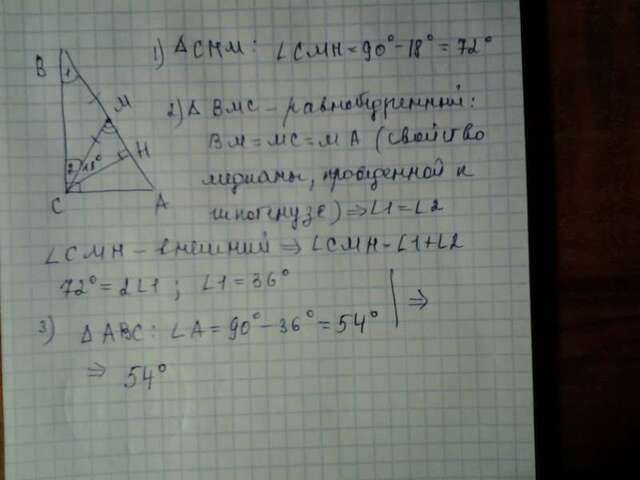 B
1
M
H
2
18°
C
A
1) ΔCHM: ∠CMH=90°-18°=72°
2) Δ BMC - равнобедренный:
BM=MC=MA (свойство
медианы, проведенной к
гипотенузе) ⇒ ∠1=∠2
∠CMH - внешний ⇒ ∠CMH=∠1+∠2
72°=2∠1; ∠1=36°
3) ΔABC: ∠A=90°-36°=54° | ⇒
⇒ 54°